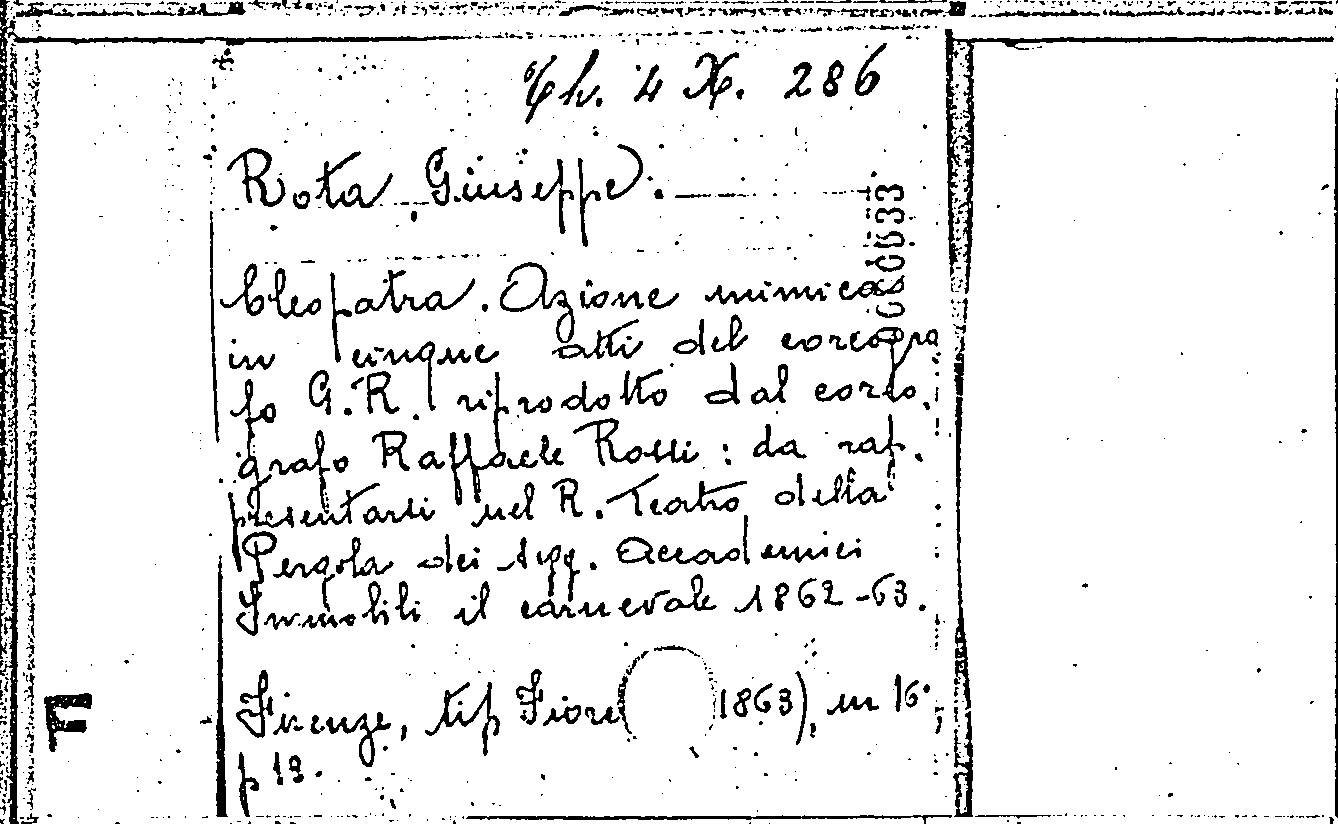 Th. 4 X. 286
Rota, Giuseppe.
Cleopatra. Azione mimica
in cinque atti del coreogra
fo G. R. riprodotto dal coreo.
grafo Raffaele Rossi: da rap.
presentarsi nel R. Teatro della
Pergola dei sigg. Accademici
Immobili il carnevale 1862-63.
Firenze, tip Fiore 1863), in 16°
p 13.
F